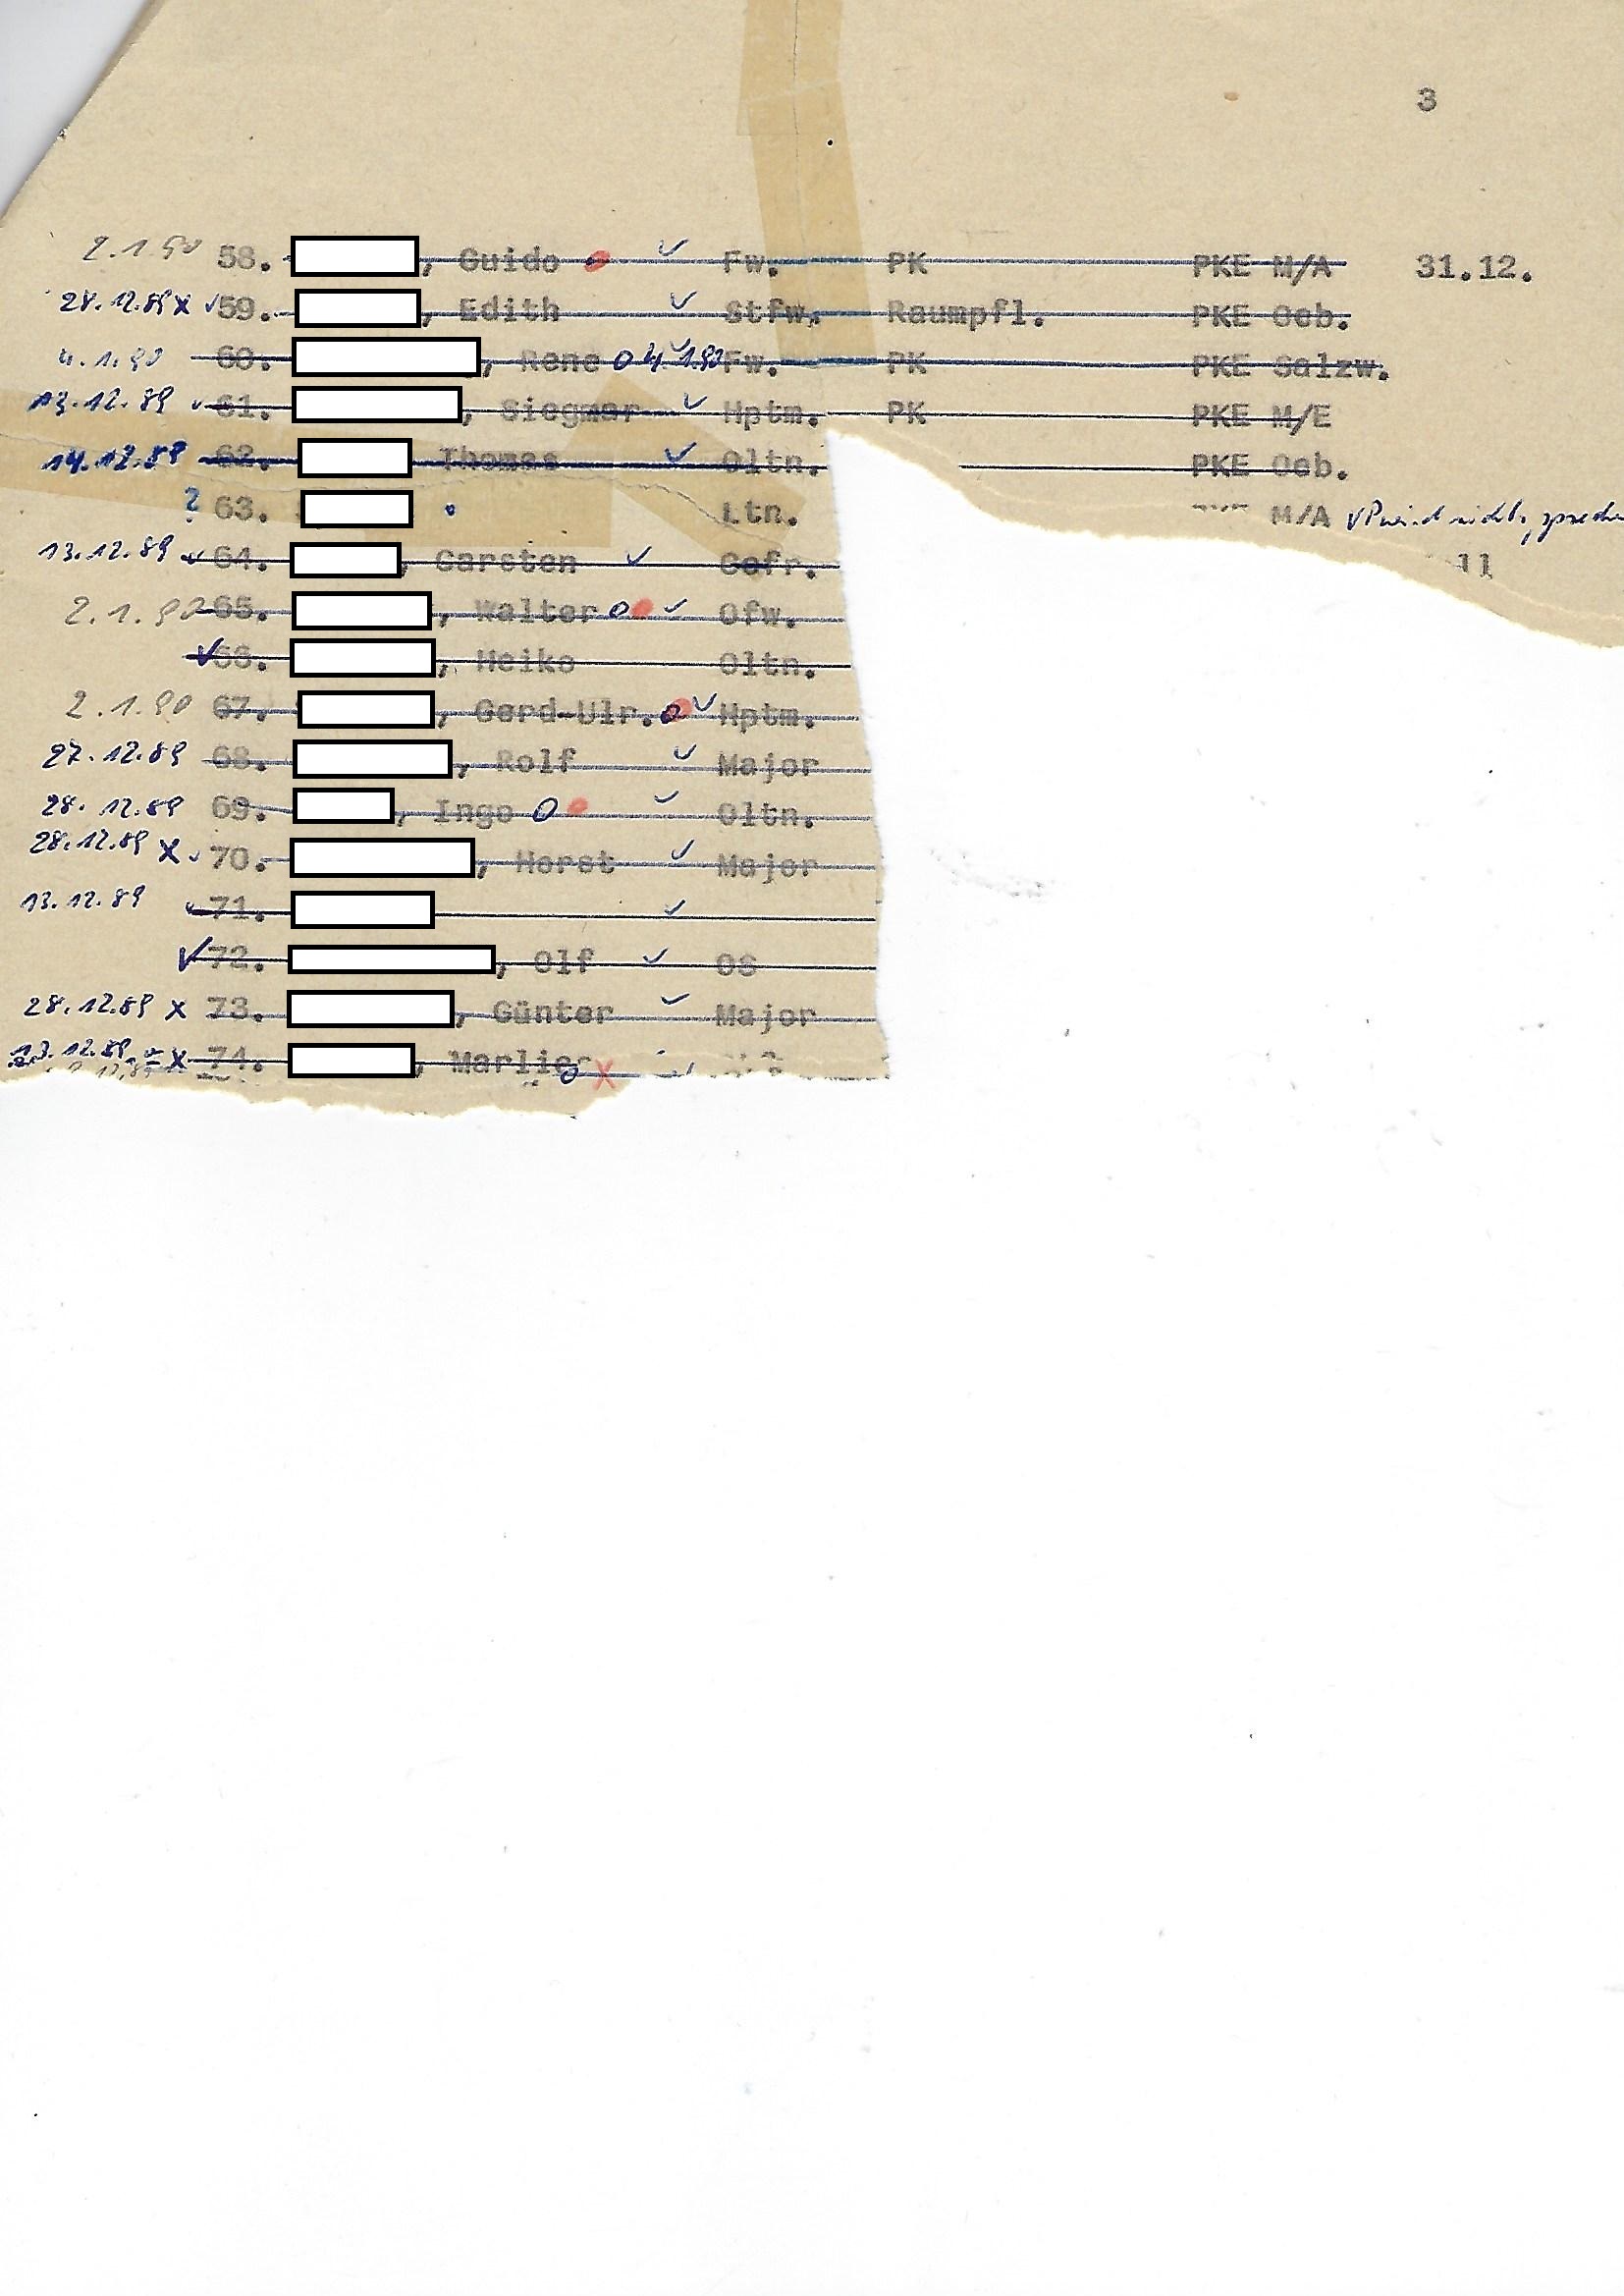 3
2.1.90 58. , Guido Fw. PK PKE M/A 31.12.
28.12.89 x 59. , Edith Stfw. Raumpfl. PKE Oeb.
4.1.90 60. , Rene 0 4.1.90 Fw. PK PKE Salzw.
13.12.89 61. , Siegmar Hptm. PK PKE M/E
14.12.89 62. Thomas Oltn. PKE Oeb.
? 63. Ltn. M/A
13.12.89 64. , Carsten Gefr. ll
2.1.90 65. , Walter 0 Ofw.
66. , Heiko Oltn.
2.1.90 67. , Gerd-Ulr. 0 Hptm.
27.12.89 68. , Rolf Major
28.12.89 69. , Ingo 0 Oltn.
28.12.89 x 70. , Horst Major
13.12.89 71.
72. , Olf OS
28.12.89 x 73. , Günter Major
13.12.89 x 74. , Marlies x